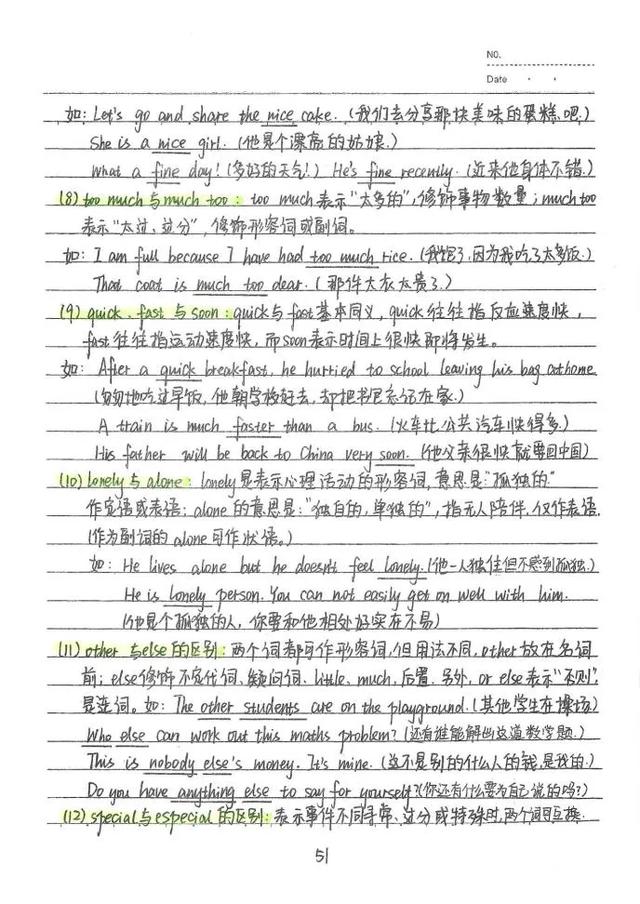 NO.
Date
如: Let's go and share the nice cake. (我们去分享那块美味的蛋糕吧.)
She is a nice girl. (她是个漂亮的姑娘.)
What a fine day! (多好的天气!) He's fine recently. (近来他身体不错.)
(8) too much与much too: too much表示"太多的",修饰事物数量;much too
表示"太过、过分",修饰形容词或副词。
如: I am full because I have had too much rice. (我饱了,因为我吃了太多饭.)
That coat is much too dear. (那件大衣太贵了.)
(9) quick、fast 与 soon: quick与fast基本同义, quick往往指反应速度快,
fast往往指运动速度快,而soon表示时间上很快即将发生。
如: After a quick breakfast, he hurried to school leaving his bag at home.
(匆匆地吃过早饭,他朝学校赶去,却把书包忘记在家.)
A train is much faster than a bus. (火车比公共汽车快得多.)
His father will be back to China very soon. (他父亲很快就要回中国)
(10) lonely与alone: lonely是表示心理活动的形容词,意思是:"孤独的"
作定语或表语; alone的意思是:"独自的,单独的",指无人陪伴,仅作表语,
(作为副词的alone可作状语。)
如: He lives alone but he doesn't feel lonely. (他一人独住但不感到孤独.)
He is lonely person. You can not easily get on well with him.
(他是个孤独的人,你要和他相处好实在不易)
(11) other 与else的区别:两个词都可作形容词,但用法不同,other放在名词
前; else修饰不定代词、疑问词、little、much,后置.另外, or else表示"否则",
是连词。如: The other students are on the playground. (其他学生在操场)
Who else can work out this maths problem? (还有谁能解出这道数学题.)
This is nobody else's money. It's mine. (这不是别的什么人的钱,是我的.)
Do you have anything else to say for yourself? (你还有什么要为自己说的吗?)
(12) special与especial的区别:表示事件不同寻常、过分或特殊时,两个词可互换.
51